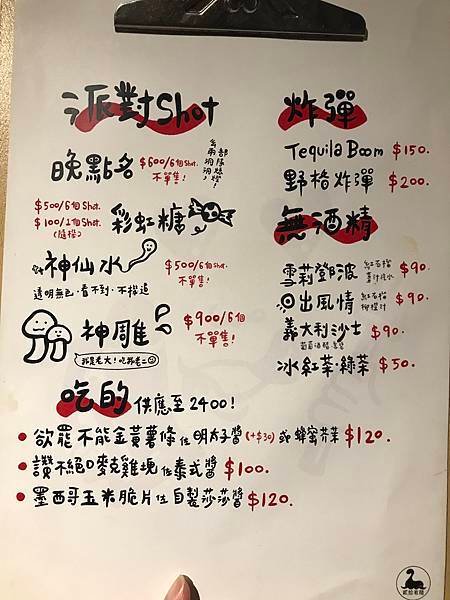 派對Shot
晚點名 $600/6個Shot. 不單售!
$500/6個Shot.
$100/1個Shot.
(隨機)
彩虹糖
神仙水 $500/6個Shot. 不單售!
透明無色·看不到·不挑逗
神雕 $900/6個Shot. 不單售!
吃的 供應至2400!
欲罷不能金黃薯條佐明太子醬(+$30)或蜂蜜芥茉 $120.
讚不絕口麥克雞塊佐泰式醬 $100.
墨西哥玉米脆片佐自製莎莎醬 $120.
炸彈
Tequila Boom $150.
野格炸彈 $200.
無酒精
雪莉鄧波 $90.
日出風情 $90.
義大利沙士 $90.
冰紅茶·綠茶 $50.